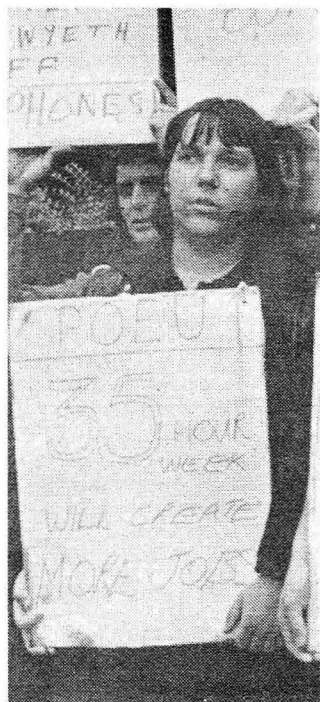 WYETH
FF
PHONES
POEU
35 HOUR
WEEK
WILL CREATE
MORE JOBS